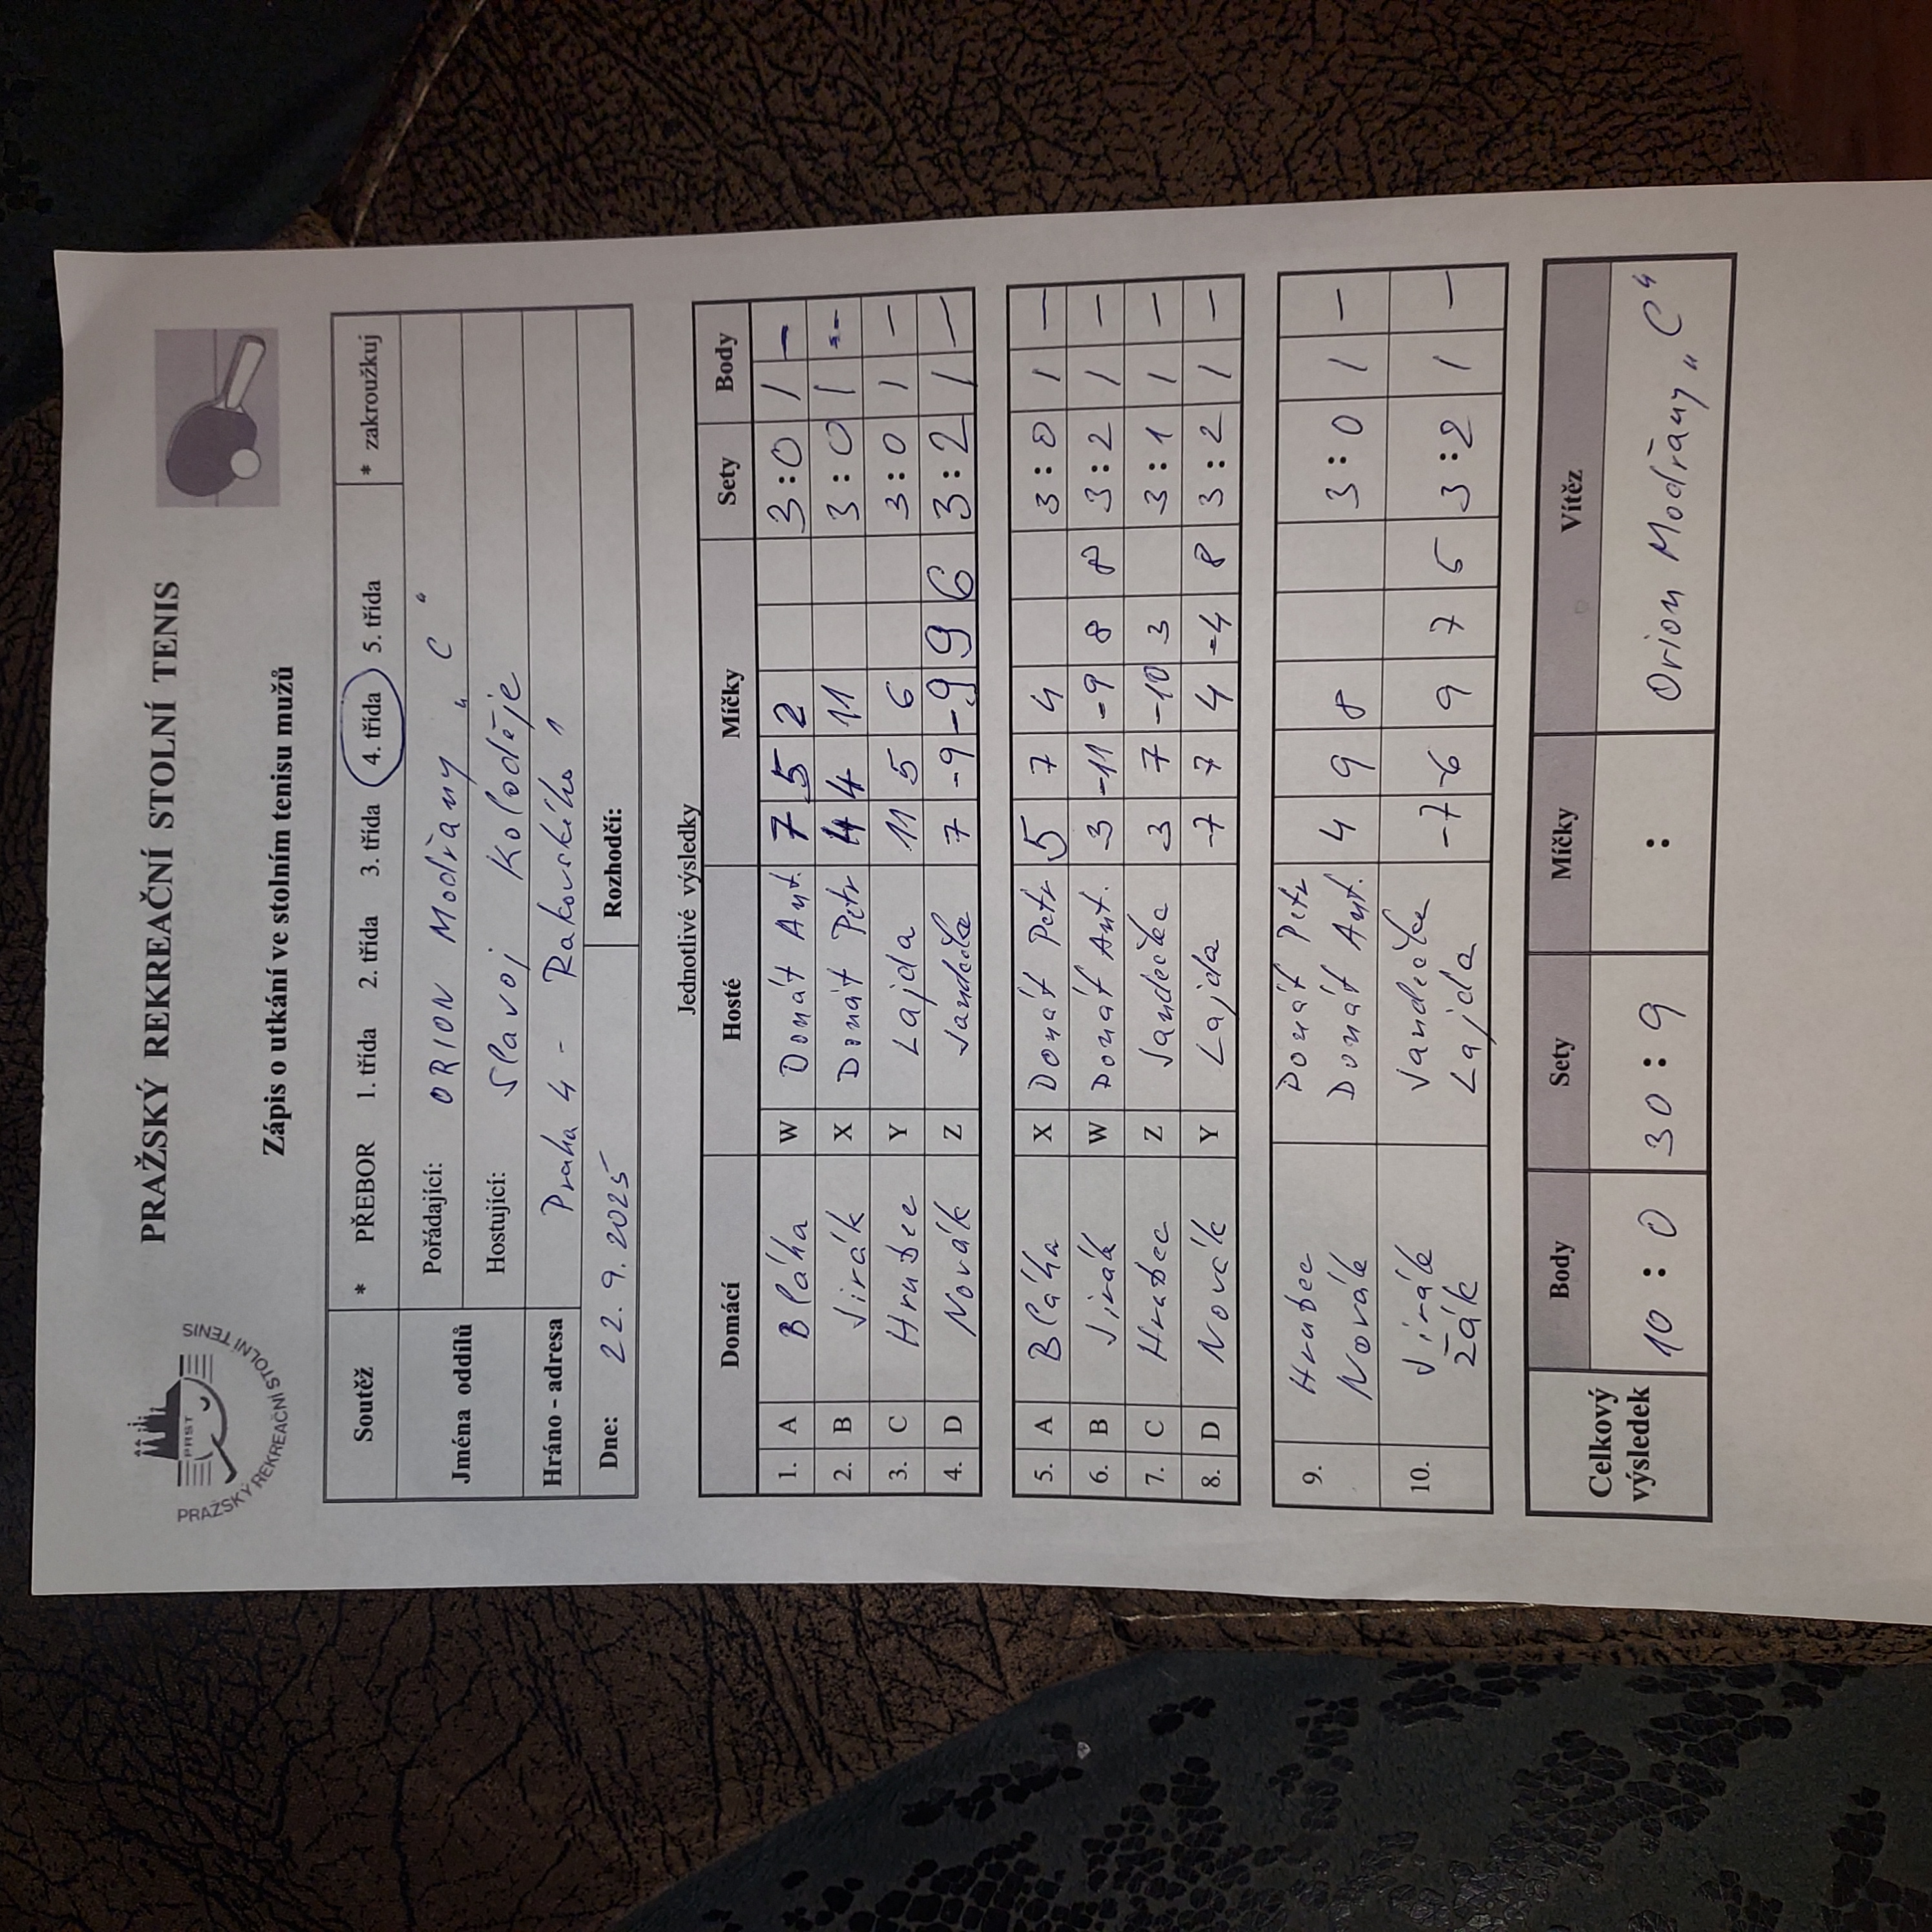 PRAŽSKÝ REKREAČNÍ STOLNÍ TENIS
PRST
PRAŽSKÝ REKREAČNÍ STOLNÍ TENIS
Zápis o utkání ve stolním tenisu mužů
Soutěž * PŘEBOR 1. třída 2. třída 3. třída 4. třída 5. třída * zakroužkuj
Jména oddílů Pořádající: ORION Modřany „C"
Hostující: Slavoj Koloděje
Hráno - adresa Praha 4 - Rakovského 1
Dne: 22.9.2025 Rozhodčí:
Jednotlivé výsledky
Domácí Hosté Míčky Sety Body
1. A Bláha W Donát Ant. 7 5 2 3:0 1 -
2. B Jirák X Donát Petr 4 4 11 3:0 1 -
3. C Hrubec Y Lajda 11 5 6 3:0 1 -
4. D Novák Z Jandečka 7 -9 -9 9 6 3:2 1 -
5. A Bláha X Donát Petr 5 7 4 3:0 1 -
6. B Jirák W Donát Ant. 3 -11 -9 8 8 3:2 1 -
7. C Hrubec Z Jandečka 3 7 -10 3 3:1 1 -
8. D Novák Y Lajda -7 7 4 -4 8 3:2 1 -
9. Hrubec Donát Petr 4 9 8 3:0 1 -
Novák Donát Ant.
10. Jirák Jandečka -7 -6 9 7 5 3:2 1 -
Žák Lajda
Celkový výsledek Body Sety Míčky Vítěz
10 : 0 30 : 9 : Orion Modřany „C"